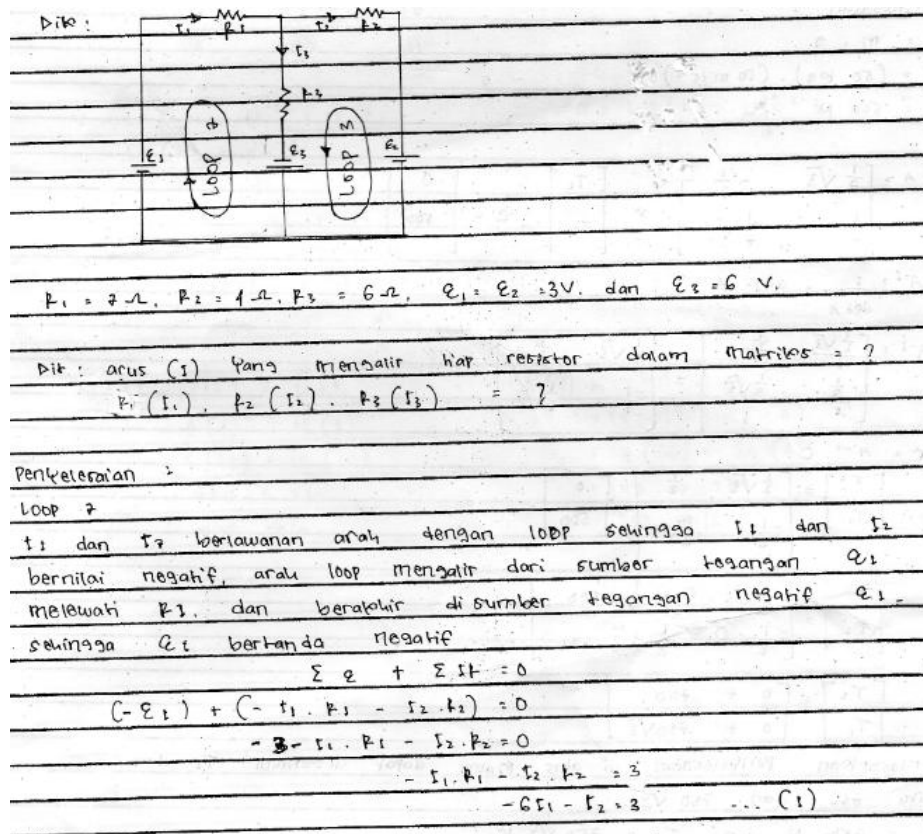 Dik :
I1 R1 I2 R2
I3
R3
ε1 LOOP ε3 LOOP ε2
R1 = 2 Ω, R2 = 1 Ω, R3 = 6 Ω, ε1 = ε2 = 3V. dan ε3 = 6 V.
Dit : arus (I) yang mengalir tiap resistor dalam matriks = ?
R1 (I1), R2 (I2), R3 (I3) = ?
Penyelesaian :
LOOP
I1 dan berlawanan arah dengan loop sehingga I1 dan I2
bernilai negatif, arah loop mengalir dari sumber tegangan ε1
melewati R1. dan berakhir di sumber tegangan negatif ε1.
sehingga ε1 bertanda negatif
Σ ε + Σ IR = 0
(-ε1) + (- I1 . R1 - I2 . R2) = 0
- 3 - I1 . R1 - I2 . R2 = 0
- I1 . R1 - I2 . R2 = 3
-6I1 - I2 = 3 ... (1)